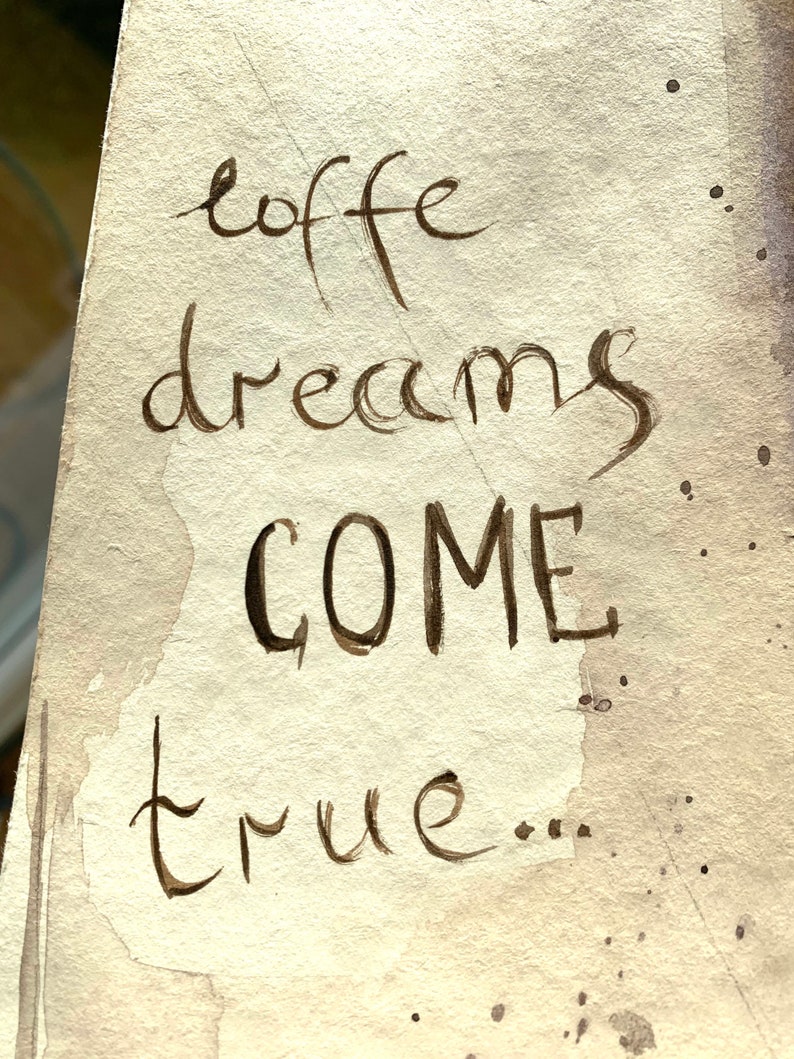 coffe
dreams
COME
true...